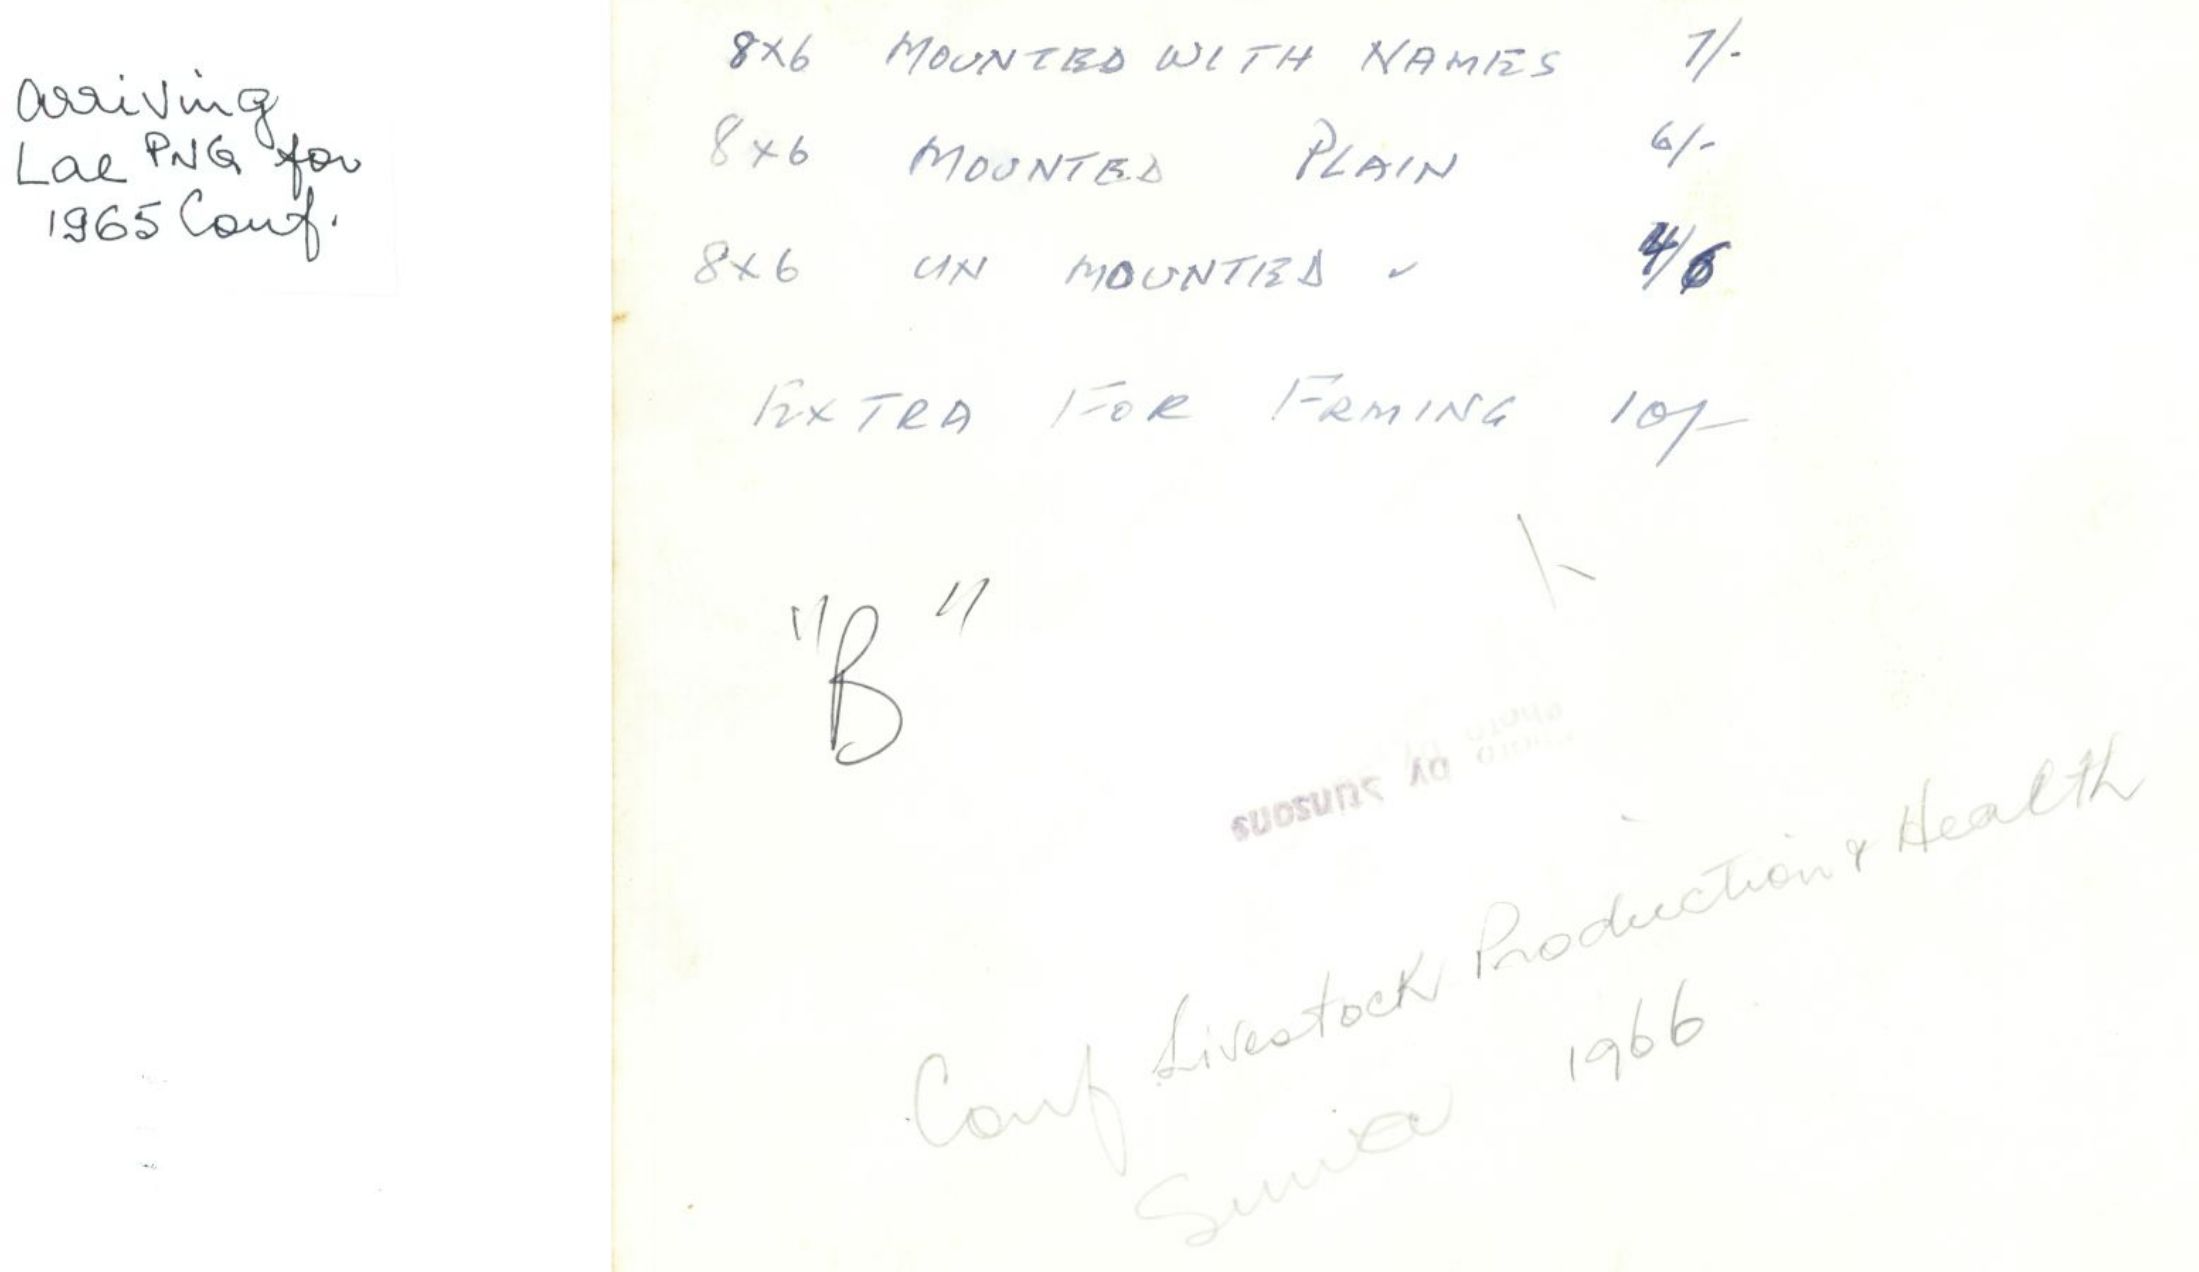 arriving
Lae PNG for
1965 Conf.
8x6 MOUNTED WITH NAMES 7/-
8x6 MOUNTED PLAIN 6/-
8x6 UN MOUNTED 4/6
EXTRA FOR FRMING 10/-
"B"
Conf Livestock Production & Health
1966